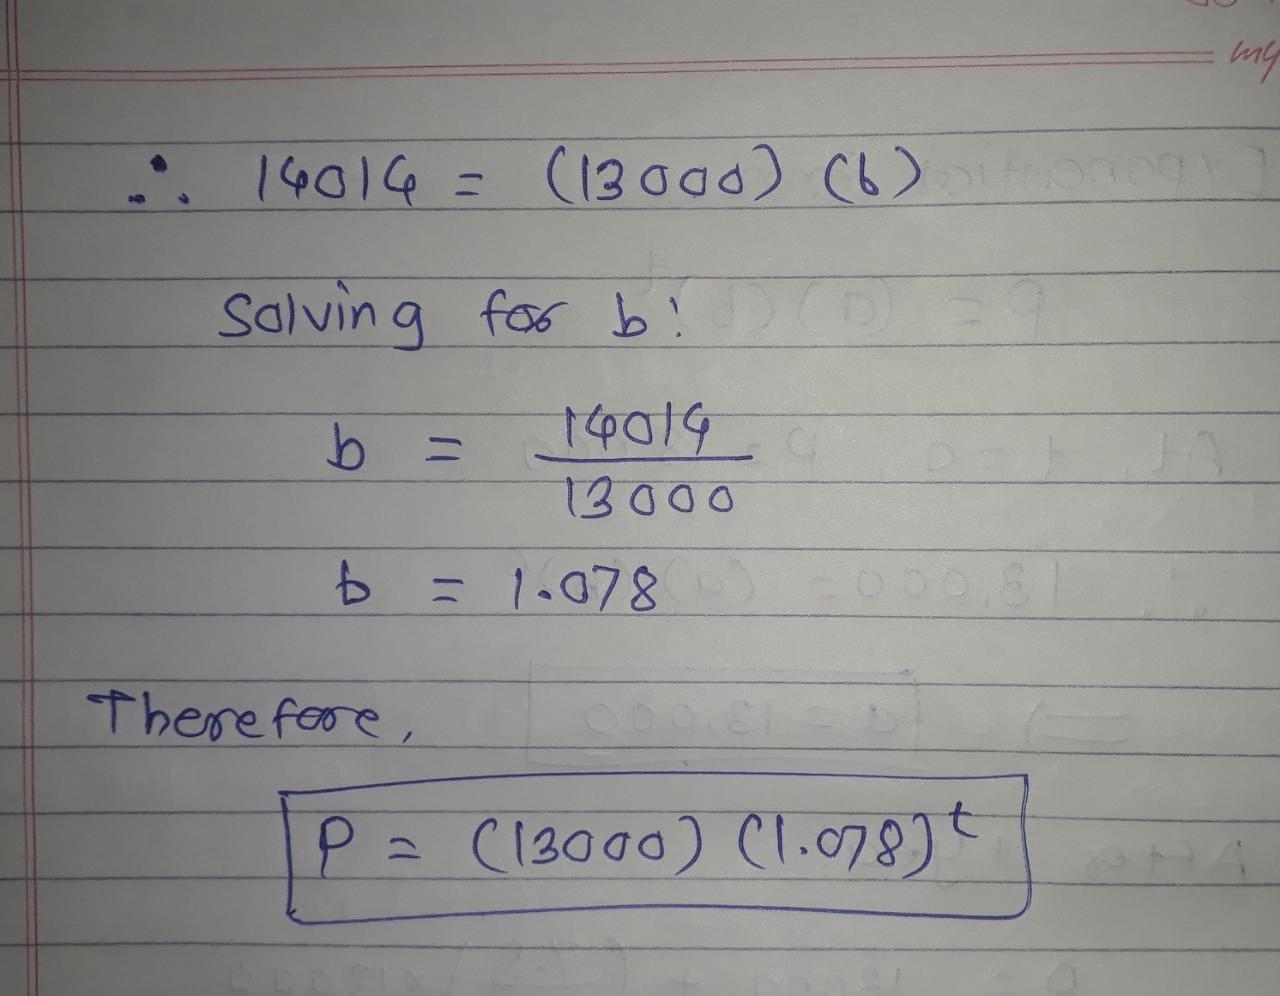 my
∴ 14014 = (13000) (b)
Solving for b:
b = 14014 / 13000
b = 1.078
Therefore,
P = (13000) (1.078)^t